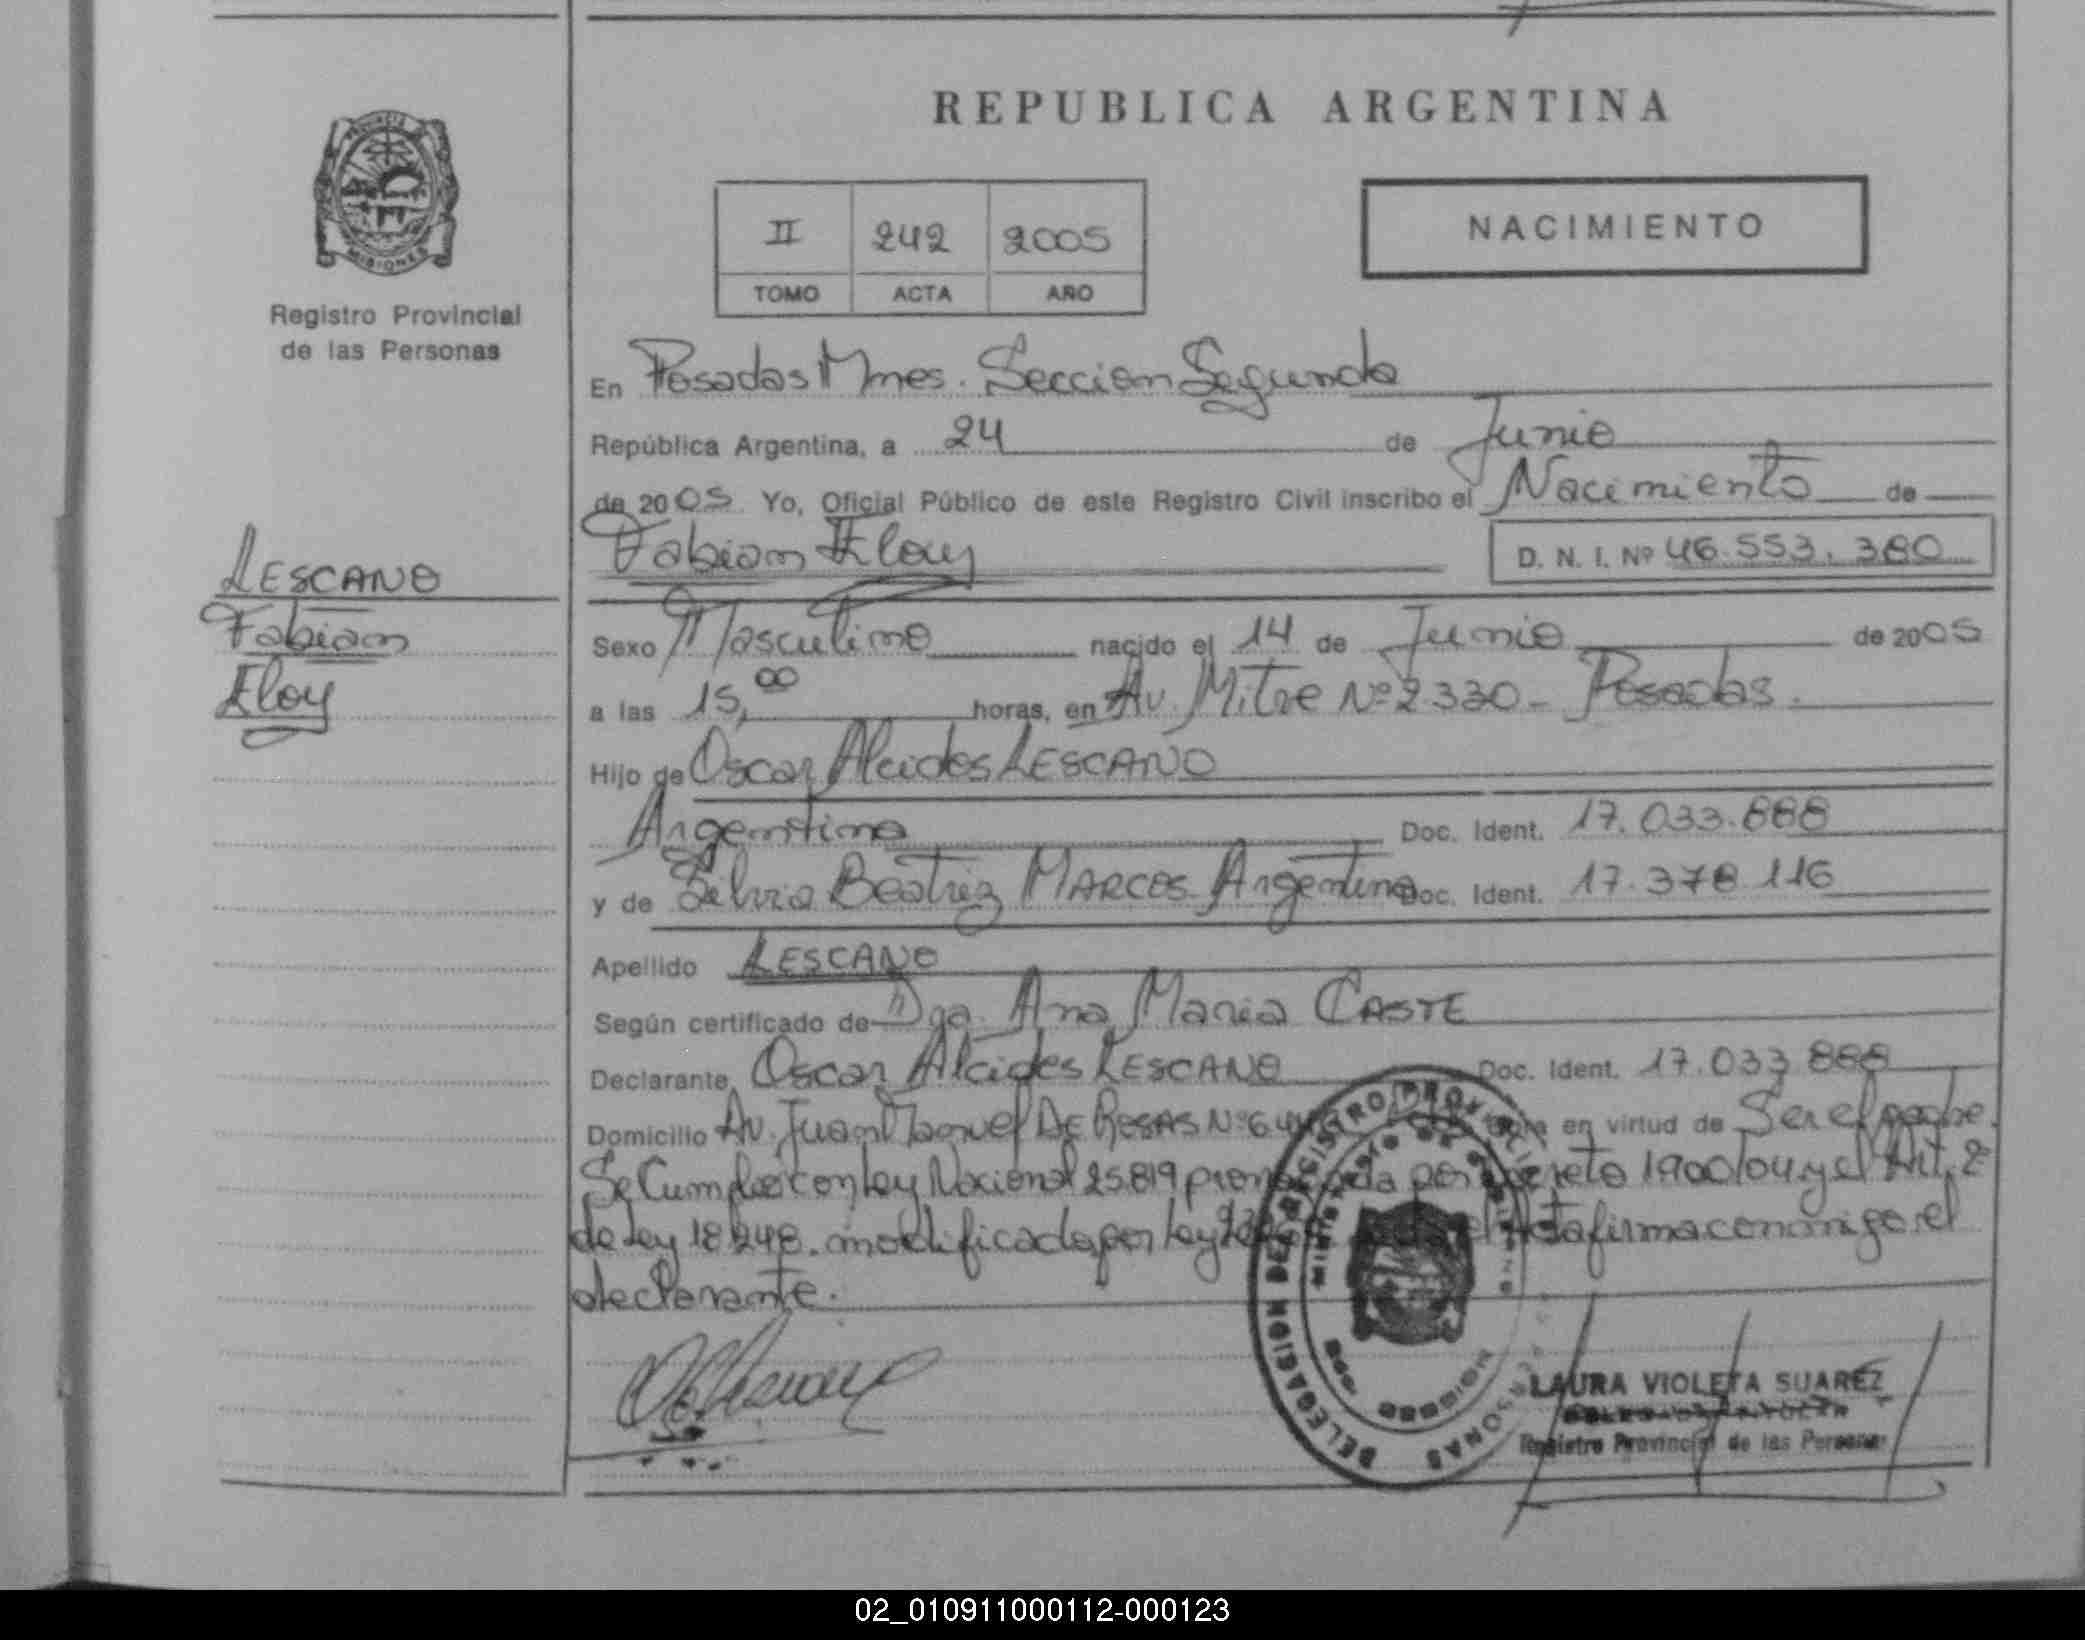 REPUBLICA ARGENTINA
PROVINCIA DE
MISIONES
Registro Provincial
de las Personas
II 242 2005
TOMO ACTA AÑO
NACIMIENTO
En Posadas Mnes. Sección Segunda
República Argentina, a 24 de Junio
de 2005 Yo, Oficial Público de este Registro Civil inscribo el Nacimiento de
Fabian Eloy
D. N. I. Nº 46.553.380
LESCANO
Fabian
Eloy
Sexo Masculino nacido el 14 de Junio de 2005
a las 15,00 horas, en Av. Mitre Nº 2330 - Posadas.
Hijo de Oscar Alcides LESCANO
Argentino Doc. Ident. 17.033.888
y de Silvia Beatriz MARCOS Argentina Doc. Ident. 17.378.116
Apellido LESCANO
Según certificado de Dga. Ana Maria CASTE
Declarante Oscar Alcides LESCANO Doc. Ident. 17.033.888
Domicilio Av. Juan Manuel DE ROSAS Nº en virtud de Ser el padre.
Se Cumple con Ley Nacional 25.819 por decreto 1900/04 y el Art. 2º
de Ley 18.248. modificada por Ley el Acta firma conmigo el
declarante.
DELEGACION DEL REGISTRO PROVINCIAL DE LAS PERSONAS
MINISTERIO DE GOBIERNO
LAURA VIOLETA SUAREZ
Registro Provincial de las Personas
02_010911000112-000123